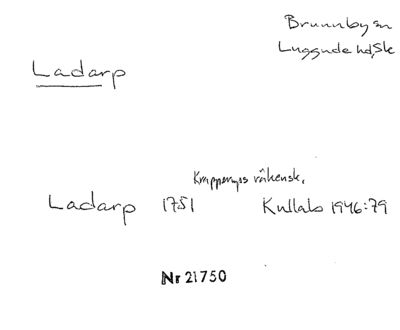 Brunnby sn
Luggude hd, Sk
Ladarp
Krapperups räkensk.
Ladarp 1751 Kullabo 1946:79
Nr 21750